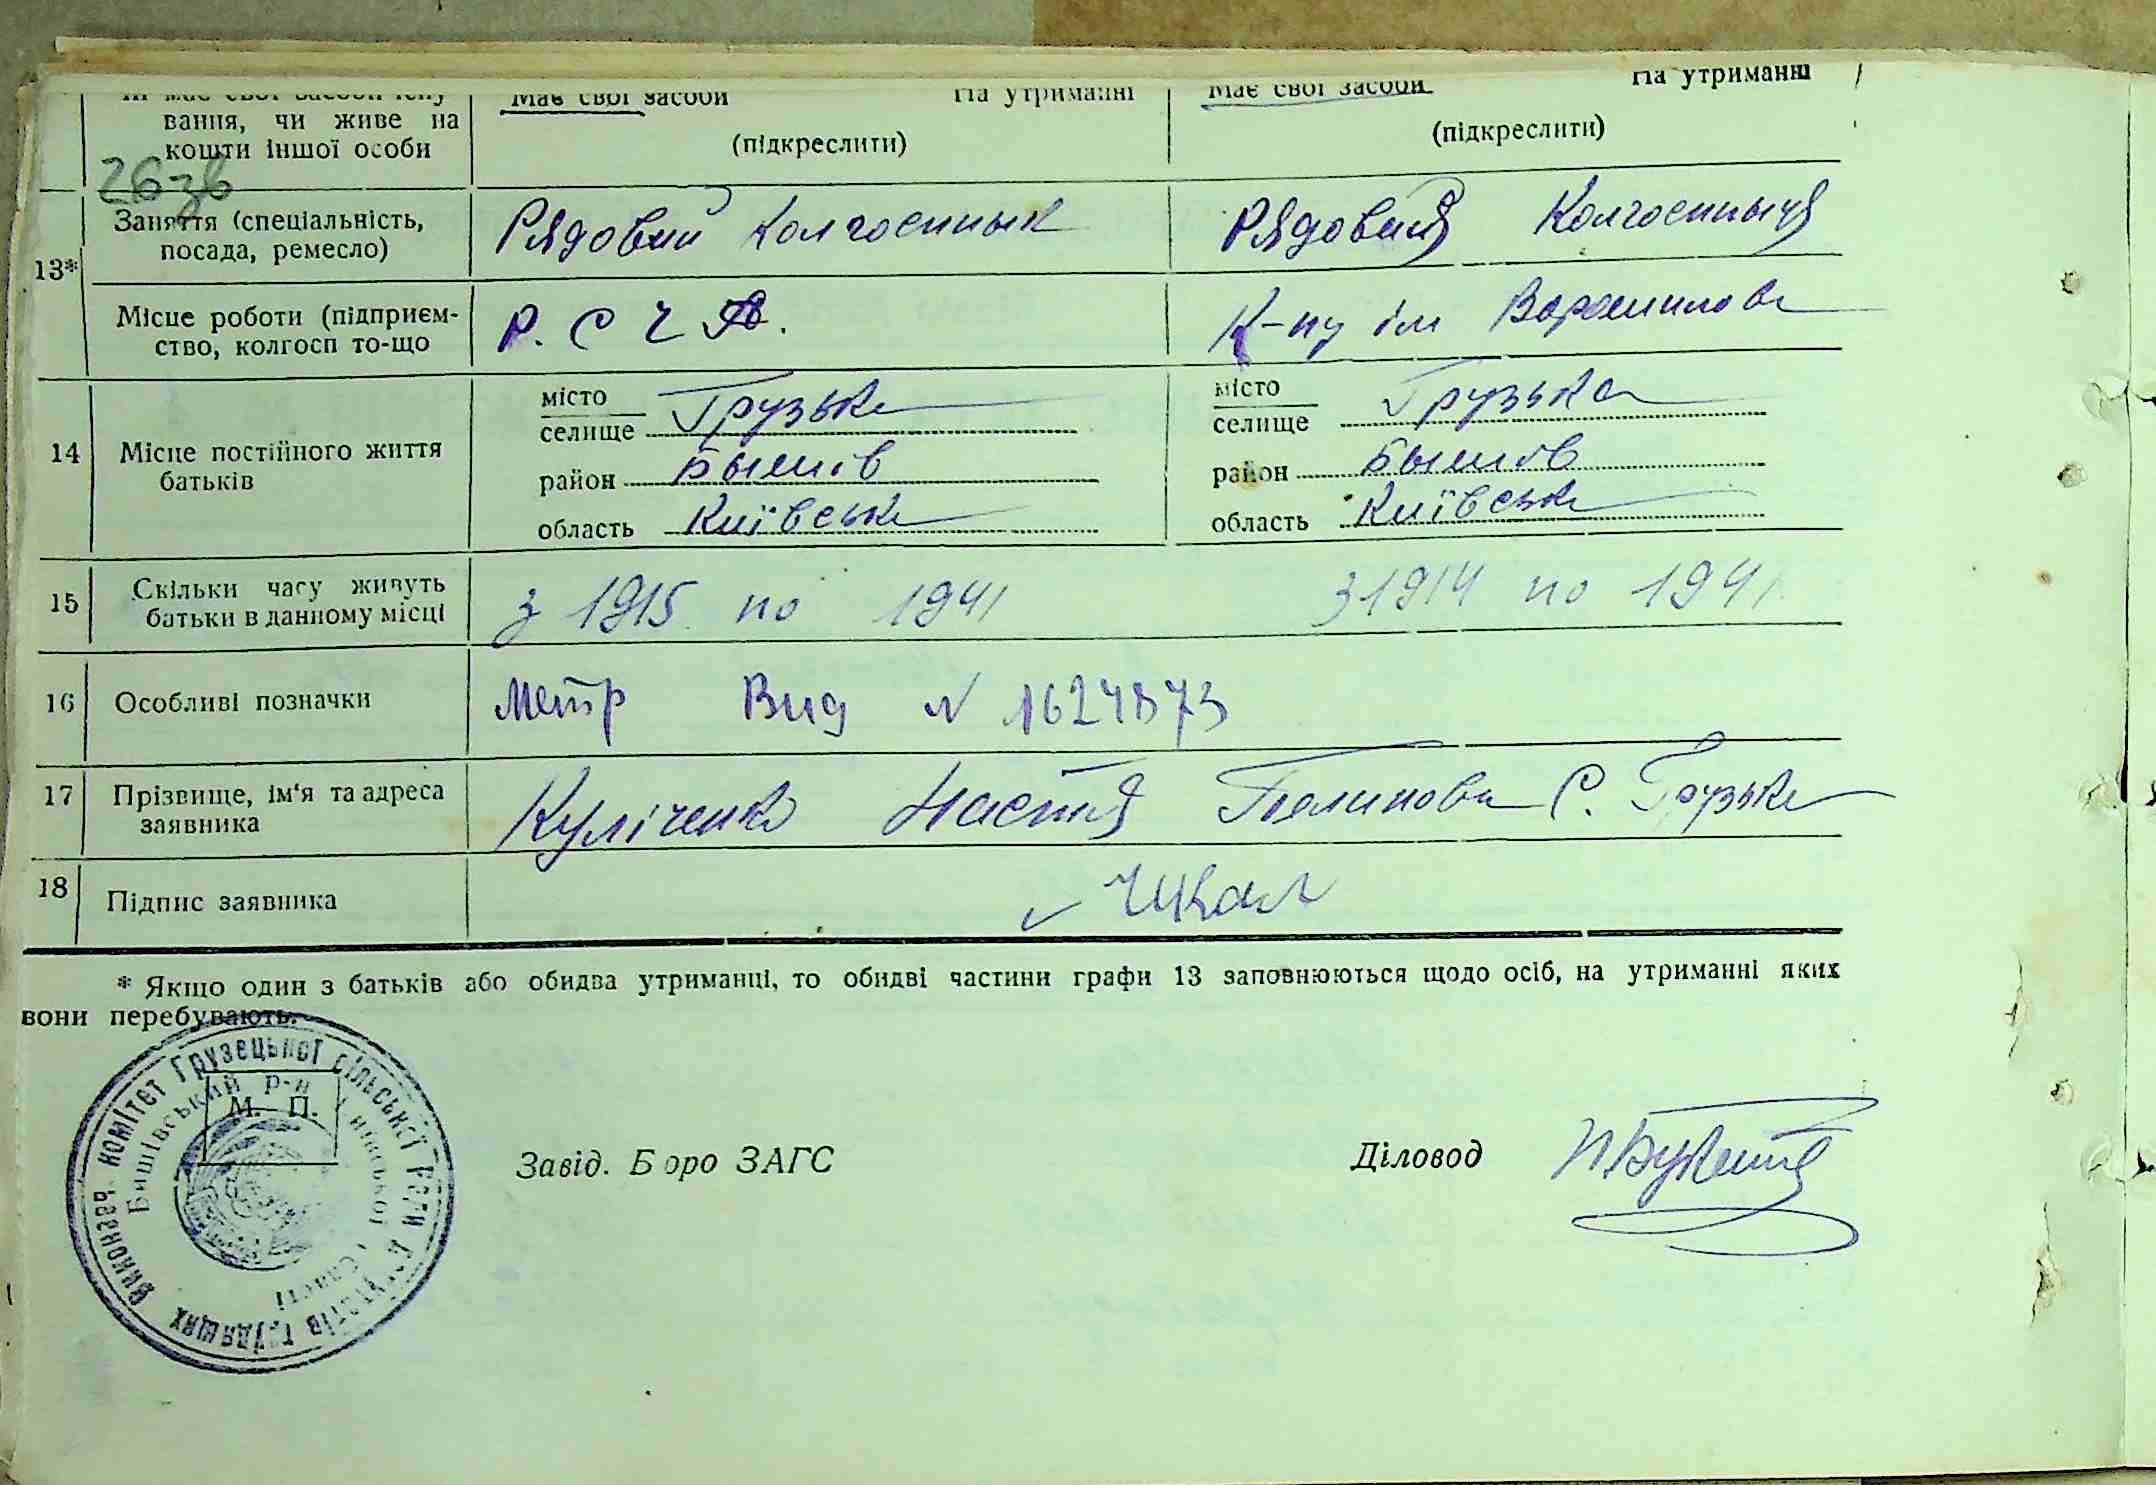 вання, чи живе на
кошти іншої особи
Має свої засоби На утриманні
(підкреслити)
Має свої засоби На утриманні
(підкреслити)
26 зв
13*
Заняття (спеціальність,
посада, ремесло)
Рядовий Колгоспнык
Рядовия Колгоспныця
Місце роботи (підприєм-
ство, колгосп то-що
Р. С Ч А.
К-пу ім Ворошилова
14
Місце постійного життя
батьків
місто
селище Грузьке
район Бышів
область Київська
місто
селище Грузька
район Бышов
область Київська
15
Скільки часу живуть
батьки в данному місці
з 1915 по 1941
з 1914 по 1941
16
Особливі позначки
Метр Вид N 1624873
17
Прізвище, ім'я та адреса
заявника
Куліченко Настя С. Грузьке
18
Підпис заявника
* Якщо один з батьків або обидва утриманці, то обидві частини графи 13 заповнюються щодо осіб, на утриманні яких
вони перебувають.
Виконавч. комітет Грузецької сільської Ради депутатів трудящих
Бишівський р-н Київської області
М. П.
Завід. Бюро ЗАГС
Діловод